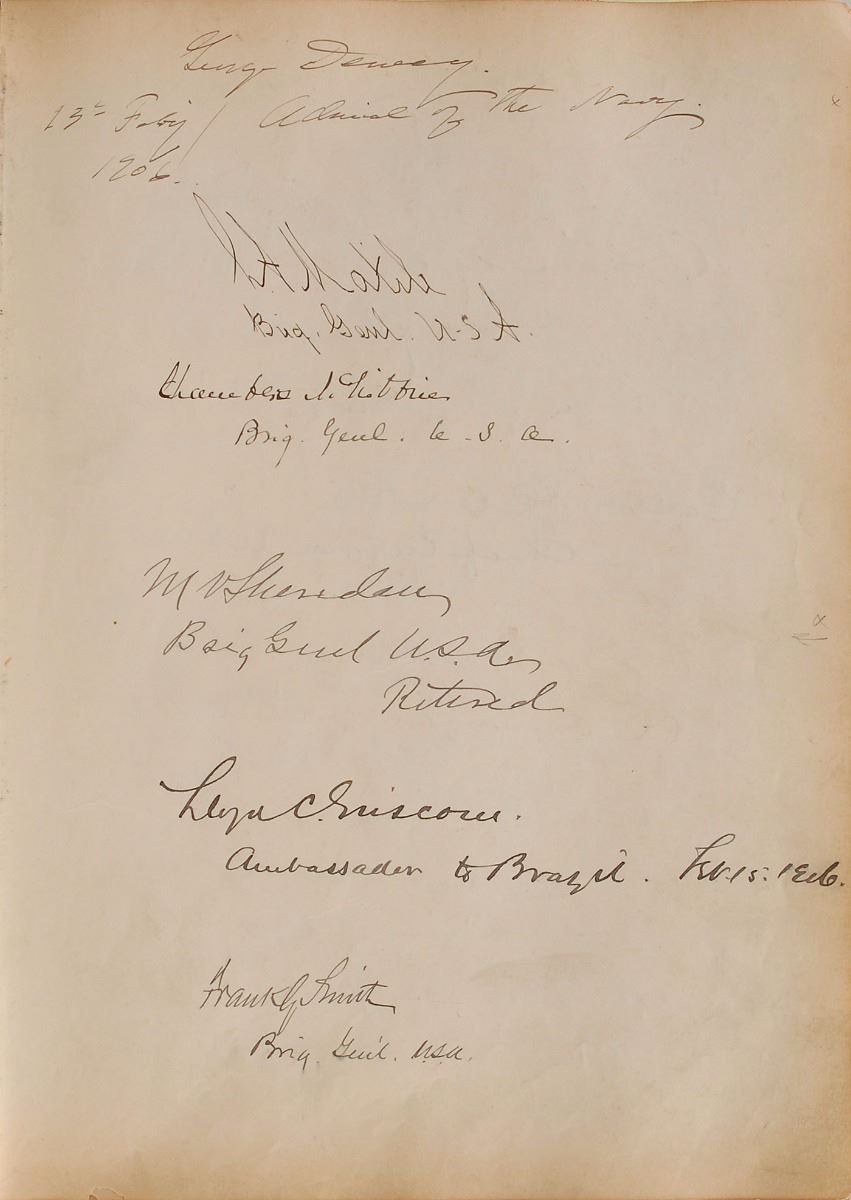 George Dewey.
13th Feby / Admiral of the Navy.
1906.
Brig. Genl. U.S.A.
Chambers McKibbin
Brig. Genl. U.S.A.
M V Sheridan
Brig Genl U.S.A.
Retired
Lloyd C. Griscom.
Ambassador to Brazil. Feb. 15. 1906.
Frank G Smith
Brig. Gen'l. U.S.A.